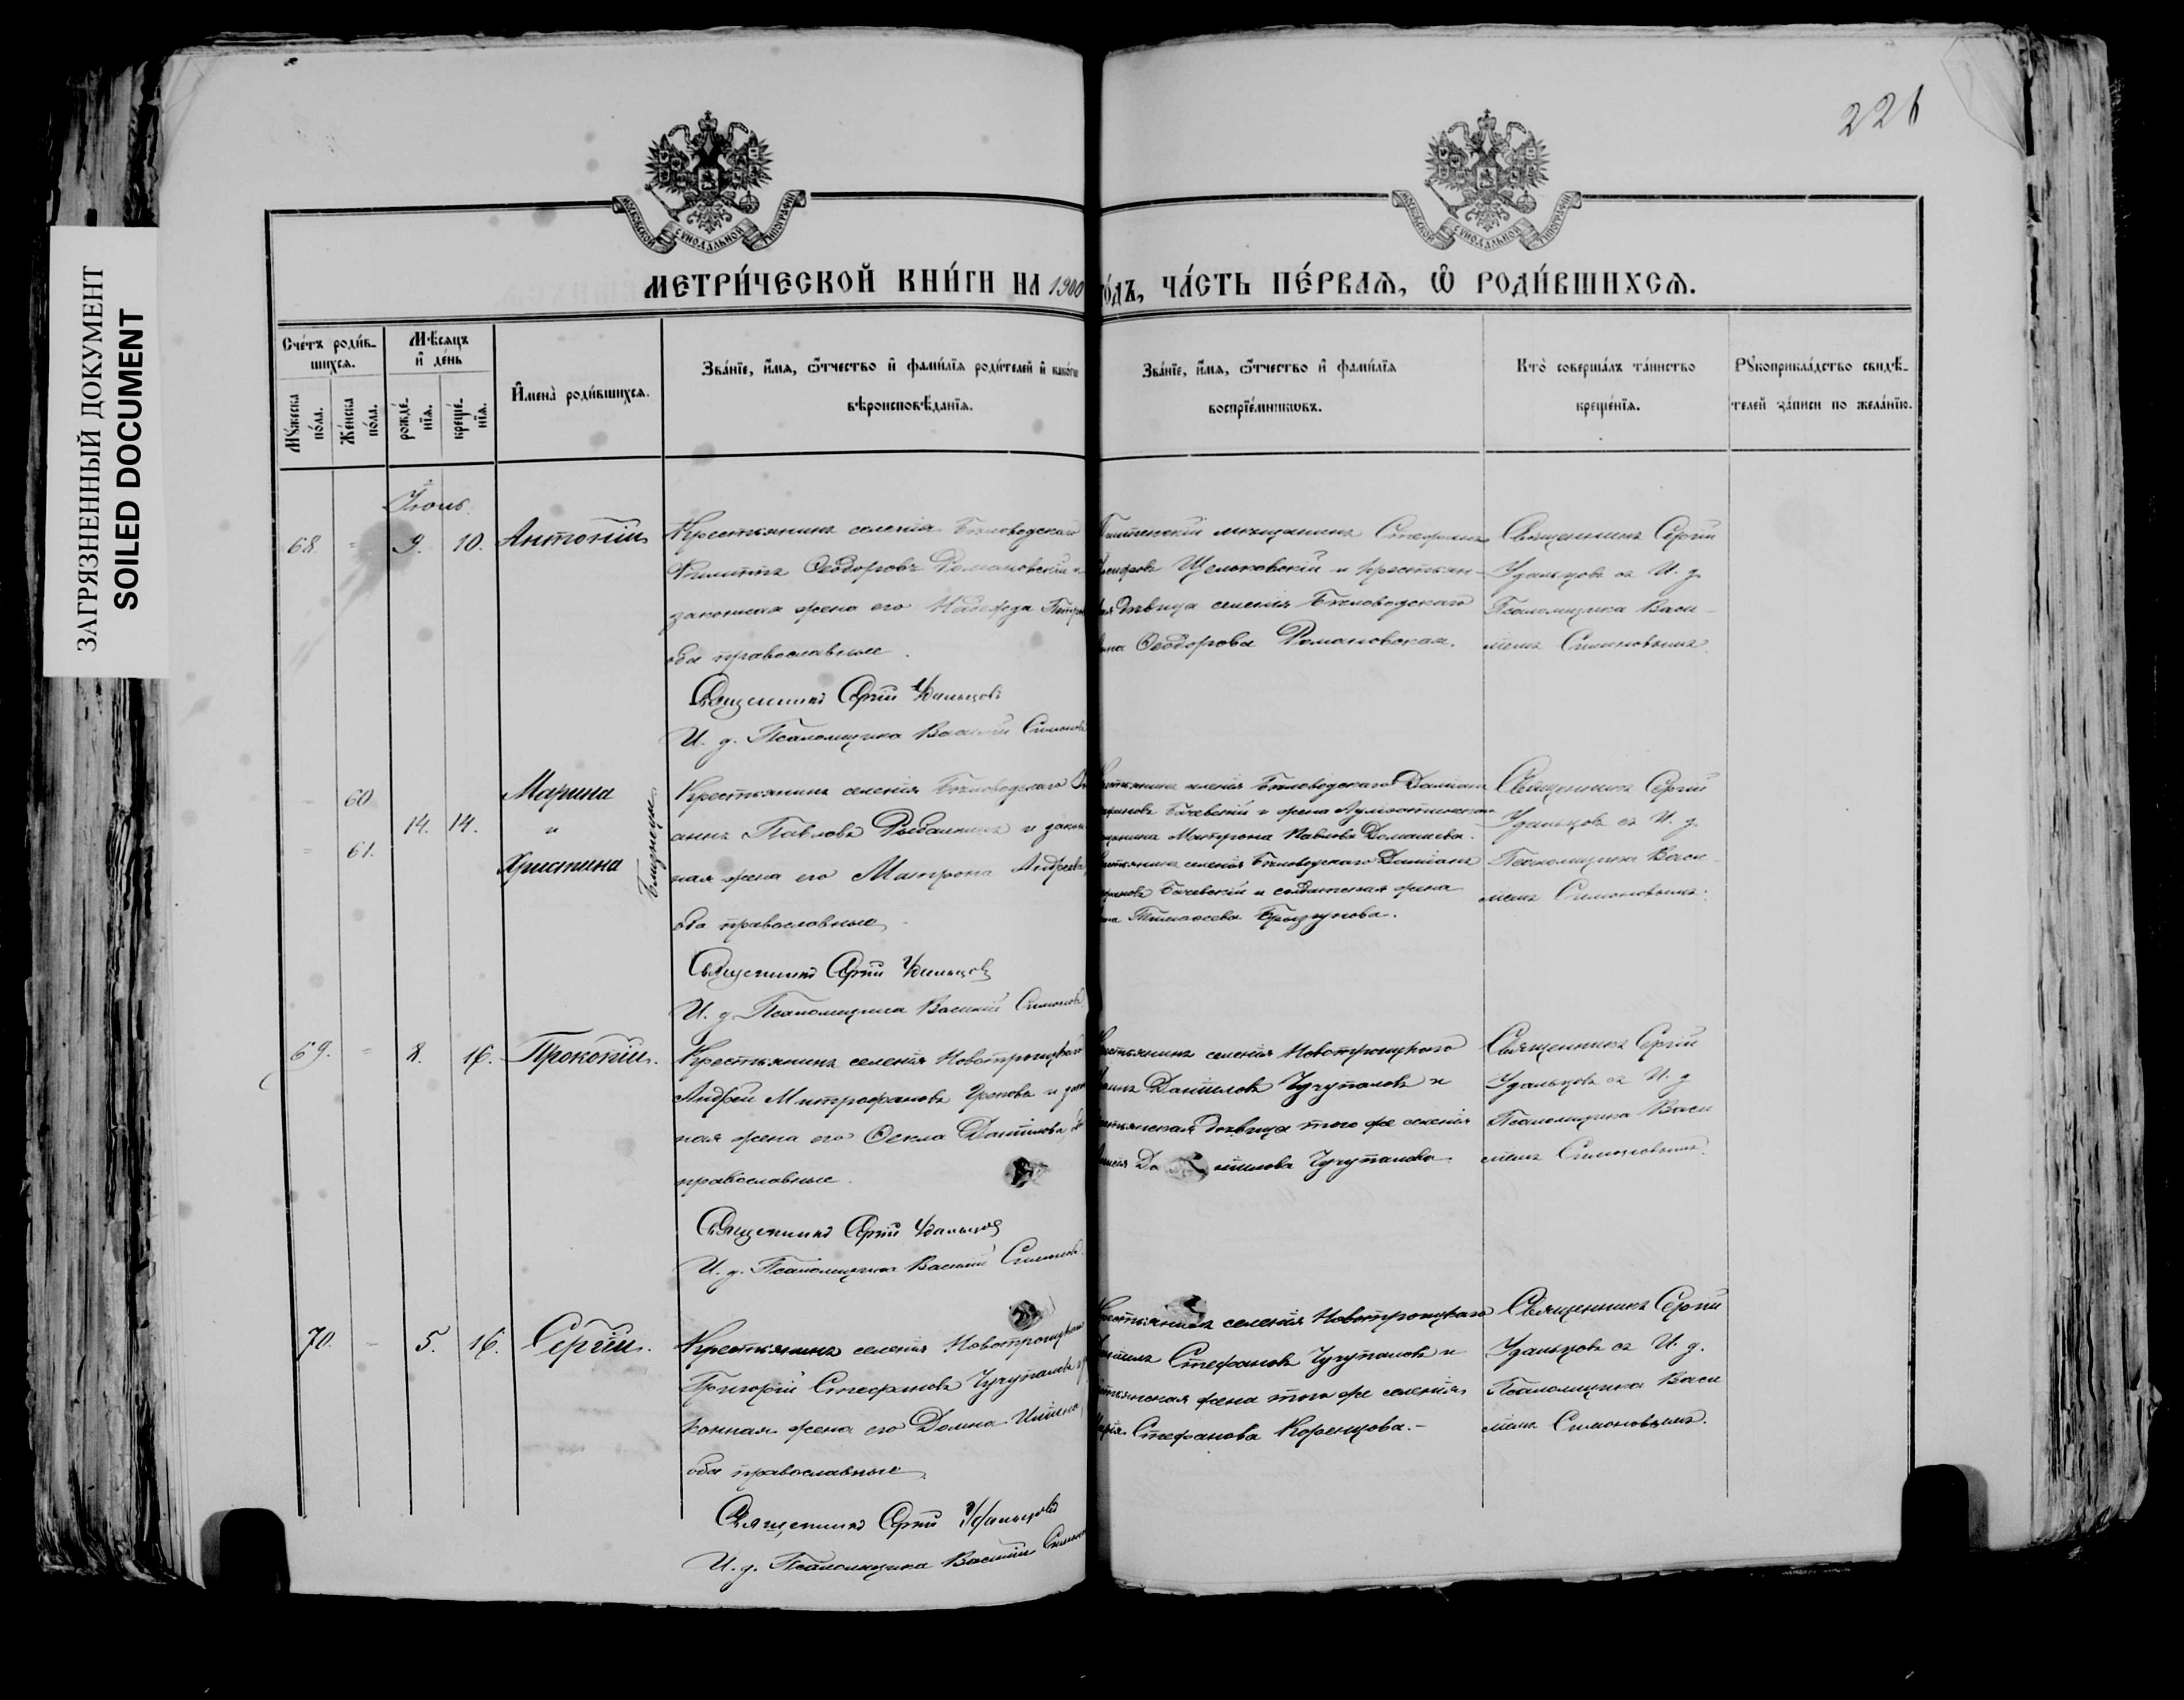 ЗАГРЯЗНЕННЫЙ ДОКУМЕНТ
SOILED DOCUMENT
226
МОСКОВСКОЙ СѴНОДАЛЬНОЙ ТИПОГРАФІИ
МОСКОВСКОЙ СѴНОДАЛЬНОЙ ТИПОГРАФІИ
МЕТРИ́ЧЕСКОЙ КНИ́ГИ НА 1900 го́дъ, ЧА́СТЬ ПЕ́РВАѦ, Ѡ҆ РОДИ́ВШИХСѦ.
Сче́тъ роди́в-
шихсѧ.
Мꙋ́жеска
по́ла.
Же́нска
по́ла.
Мѣ́сѧцъ
и҆ де́нь
рожде́-
нїѧ.
креще́-
нїѧ.
И҆мена̀ роди́вшихсѧ.
Зва́нїе, и҆́мѧ, ѻ҆́тчество и҆ фамі́лїѧ роди́телей и҆ како́гѡ
вѣроисповѣ́данїѧ.
Зва́нїе, и҆́мѧ, ѻ҆́тчество и҆ фамі́лїѧ
воспрїе́мникѡвъ.
Кто̀ соверша́лъ та́инство
креще́нїѧ.
Рꙋкоприкла́дство свидѣ́-
телей за́писи по жела́нїю.
Іюнь.
68.
9. 10. Антоній
Крестьянинъ селенія Бѣловодскаго
Филиппъ Ѳеодоровъ Романовскій и
законная жена его Надежда Петро
оба православные.
Священникъ Сергій Удальцовъ
И. д. Псаломщика Василій Симоновъ
мѣщанинъ Стефанъ
Щелоковскій и крестьян-
дѣвица селенія Бѣловодскаго
Ѳеодорова Романовская.
Священникъ Сергій
Удальцовъ съ И. д.
Псаломщика Васи-
ліемъ Симоновымъ.
60
61.
14. 14.
Марина
и
Христина
Близнецы
Крестьянинъ селенія Бѣловодскаго
Павловъ Рыбалкинъ и закон
ная жена его Матрона Андреева,
оба православные
Священникъ Сергій Удальцовъ
И. д. Псаломщика Василій Симоновъ
селенія Бѣловодскаго Даміанъ
Бачевскій и жена
Матрона Павлова Домашева.
селенія Бѣловодскаго Даміанъ
Бачевскій и солдатская жена
Тимоѳеева Брызгунова.
Священникъ Сергій
Удальцовъ съ И. д.
Псаломщика Васи-
ліемъ Симоновымъ.
69.
8. 16. Прокопій.
Крестьянинъ селенія Новотроицкаго
Андрей Митрофановъ и закон
ная жена его Ѳекла Даніилова, оба
православные.
Священникъ Сергій Удальцовъ
И. д. Псаломщика Василій Симоновъ
селенія Новотроицкаго
Даніиловъ Чучупаловъ и
дѣвица того же селенія
Даніилова Чучупалова
Священникъ Сергій
Удальцовъ съ И. д.
Псаломщика Васи
ліемъ Симоновымъ.
70.
5. 16. Сергій.
Крестьянинъ селенія Новотроицкаго
Григорій Стефановъ Чучупаловъ
конная жена его Домна
оба православные
Священникъ Сергій Удальцовъ
И. д. Псаломщика Василій Симоновъ
селенія Новотроицкаго
Стефановъ Чучупаловъ и
жена того же селенія
Стефанова Коренцова.-
Священникъ Сергій
Удальцовъ съ И. д.
Псаломщика Васи
ліемъ Симоновымъ.